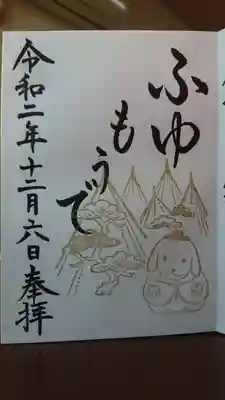 ふゆ
もうで
令和二年十二月六日奉拝